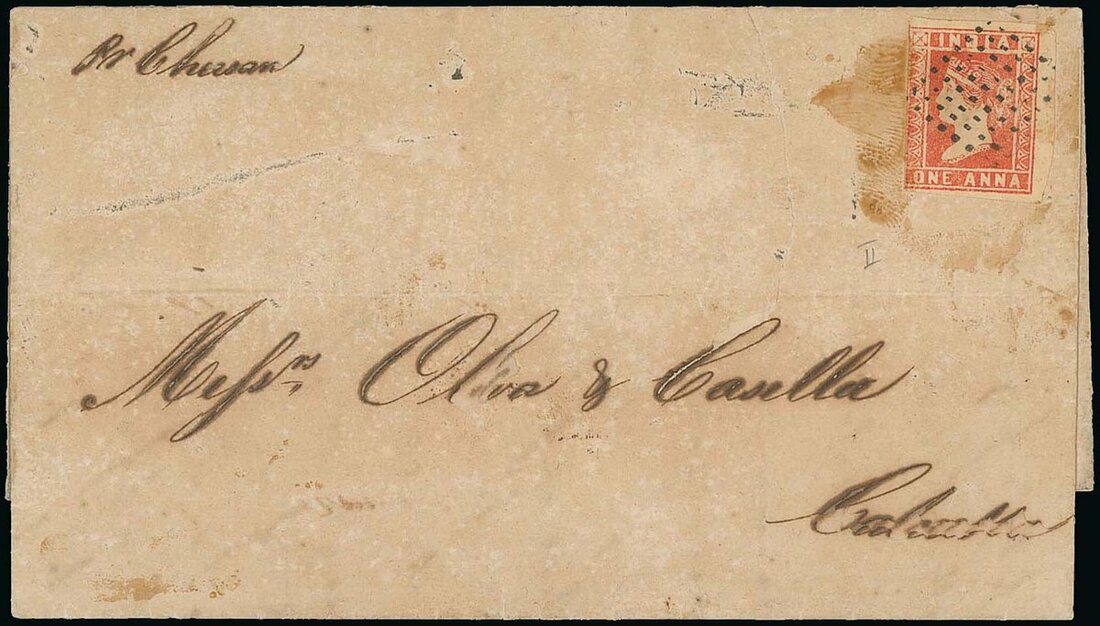 Pr Chusan
INDIA
ONE ANNA
II
Messrs Oliva & Casella
Calcutta